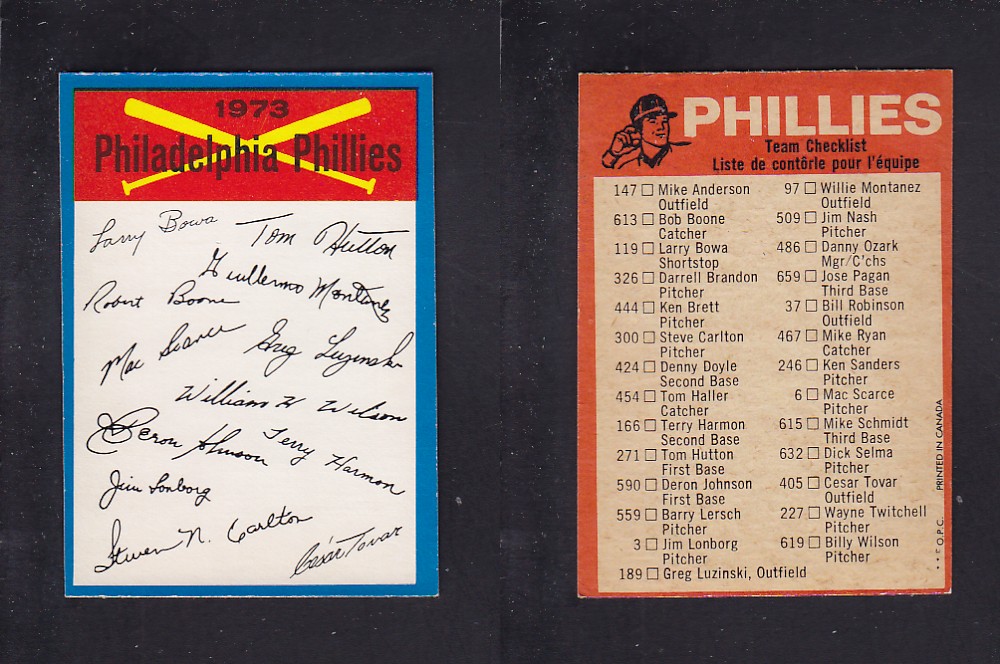 1973
Philadelphia Phillies
Larry Bowa
Tom Hutton
Guillermo Montanez
Robert Boone
Mac Scarce
Greg Luzinski
William H Wilson
Deron Johnson
Terry Harmon
Jim Lonborg
Steven N. Carlton
César Tovar
PHILLIES
Team Checklist
Liste de contôrle pour l'équipe
147 Mike Anderson
Outfield
613 Bob Boone
Catcher
119 Larry Bowa
Shortstop
326 Darrell Brandon
Pitcher
444 Ken Brett
Pitcher
300 Steve Carlton
Pitcher
424 Denny Doyle
Second Base
454 Tom Haller
Catcher
166 Terry Harmon
Second Base
271 Tom Hutton
First Base
590 Deron Johnson
First Base
559 Barry Lersch
Pitcher
3 Jim Lonborg
Pitcher
189 Greg Luzinski, Outfield
97 Willie Montanez
Outfield
509 Jim Nash
Pitcher
486 Danny Ozark
Mgr/C'chs
659 Jose Pagan
Third Base
37 Bill Robinson
Outfield
467 Mike Ryan
Catcher
246 Ken Sanders
Pitcher
6 Mac Scarce
Pitcher
615 Mike Schmidt
Third Base
632 Dick Selma
Pitcher
405 Cesar Tovar
Outfield
227 Wayne Twitchell
Pitcher
619 Billy Wilson
Pitcher
**E O.P.C. PRINTED IN CANADA